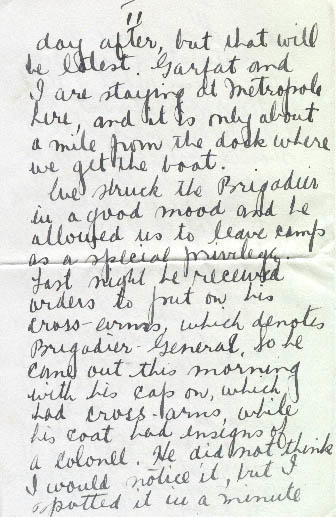 11
day after, but that will
be latest. Garfat and
I are staying at Metropole
here, and it is only about
a mile from the dock where
we get the boat.
We struck the Brigadier
in a good mood and he
allowed us to leave camp
as a special privilege.
Last night he received
orders to put on his
cross-arms, which denotes
Brigadier-General, so he
came out this morning
with his cap on, which
had cross-arms, while
his coat had insigns of
a colonel. He did not think
I would notice it, but I
spotted it in a minute